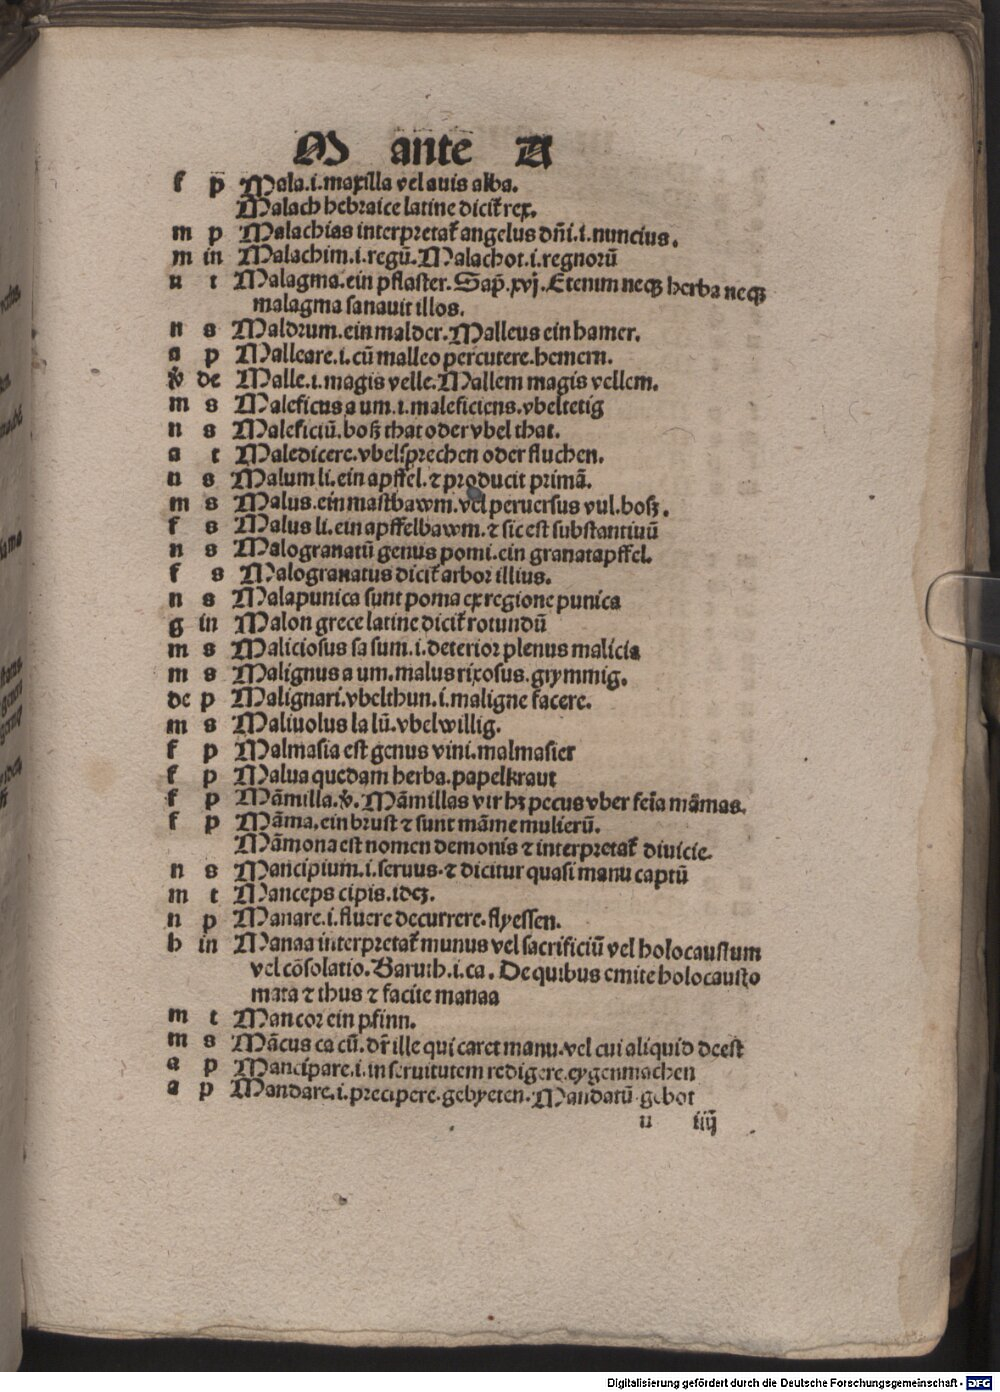 M ante A
f p Mala.i.maxilla vel auis alba.
Malach hebraice latine dicit̃ rex.
m p Malachias interpretat̃ angelus dñi.i.nuncius.
m in Malachim.i.regũ.Malachot.i.regnorũ
n t Malagma.ein pflaster.Sap̃.xvj.Etenim neqꝫ herba neqꝫ
malagma sanauit illos.
n s Maldrum.ein malder.Malleus ein hamer.
a p Malleare.i.cũ malleo percutere.hemern.
v̾ de Malle.i.magis velle.Mallem magis vellem.
m s Maleficus a um.i.maleficiens.vbeltetig
n s Maleficiũ.boß that oder vbel that.
a t Maledicere.vbelsprechen oder fluchen.
n s Malum li.ein apffel.⁊ producit primã.
m s Malus.ein mastbawm.vel peruersus vul.boß.
f s Malus li.ein apffelbawm.⁊ sic est substantiuũ
n s Malogranatũ genus pomi.ein granatapffel.
f s Malogranatus dicit̃ arbor illius.
n s Malapunica sunt poma ex regione punica
g in Malon grece latine dicit̃ rotundũ
m s Maliciosus sa sum.i.deterior plenus malicia
m s Malignus a um.malus rixosus.grymmig.
de p Malignari.vbelthun.i.maligne facere.
m s Maliuolus la lũ.vbelwillig.
f p Malmasia est genus vini.malmasier
f p Malua quedam herba.papelkraut
f p Mãmilla.v̾.Mãmillas vir hꝫ pecus vber feĩa mãmas.
f p Mãma.ein brust ⁊ sunt mãme mulierũ.
Mãmona est nomen demonis ⁊ interpretat̃ diuicie.
n s Mancipium.i.seruus.⁊ dicitur quasi manu captũ
m t Manceps cipis.ideꝫ.
n p Manare.i.fluere decurrere.flyessen.
h in Manaa interpretat̃ munus vel sacrificiũ vel holocaustum
vel cõsolatio.Baruch.i.ca.De quibus emite holocausto
mata ⁊ thus ⁊ facite manaa
m t Mancor ein pfinn.
m s Mãcus ca cũ.dr̃ ille qui caret manu.vel cui aliquid deest
a p Mancipare.i.in seruitutem redigere.eygenmachen
a p Mandare.i.precipere.gebyeten.Mandatũ gebot
u iiij
Digitalisierung gefördert durch die Deutsche Forschungsgemeinschaft - DFG